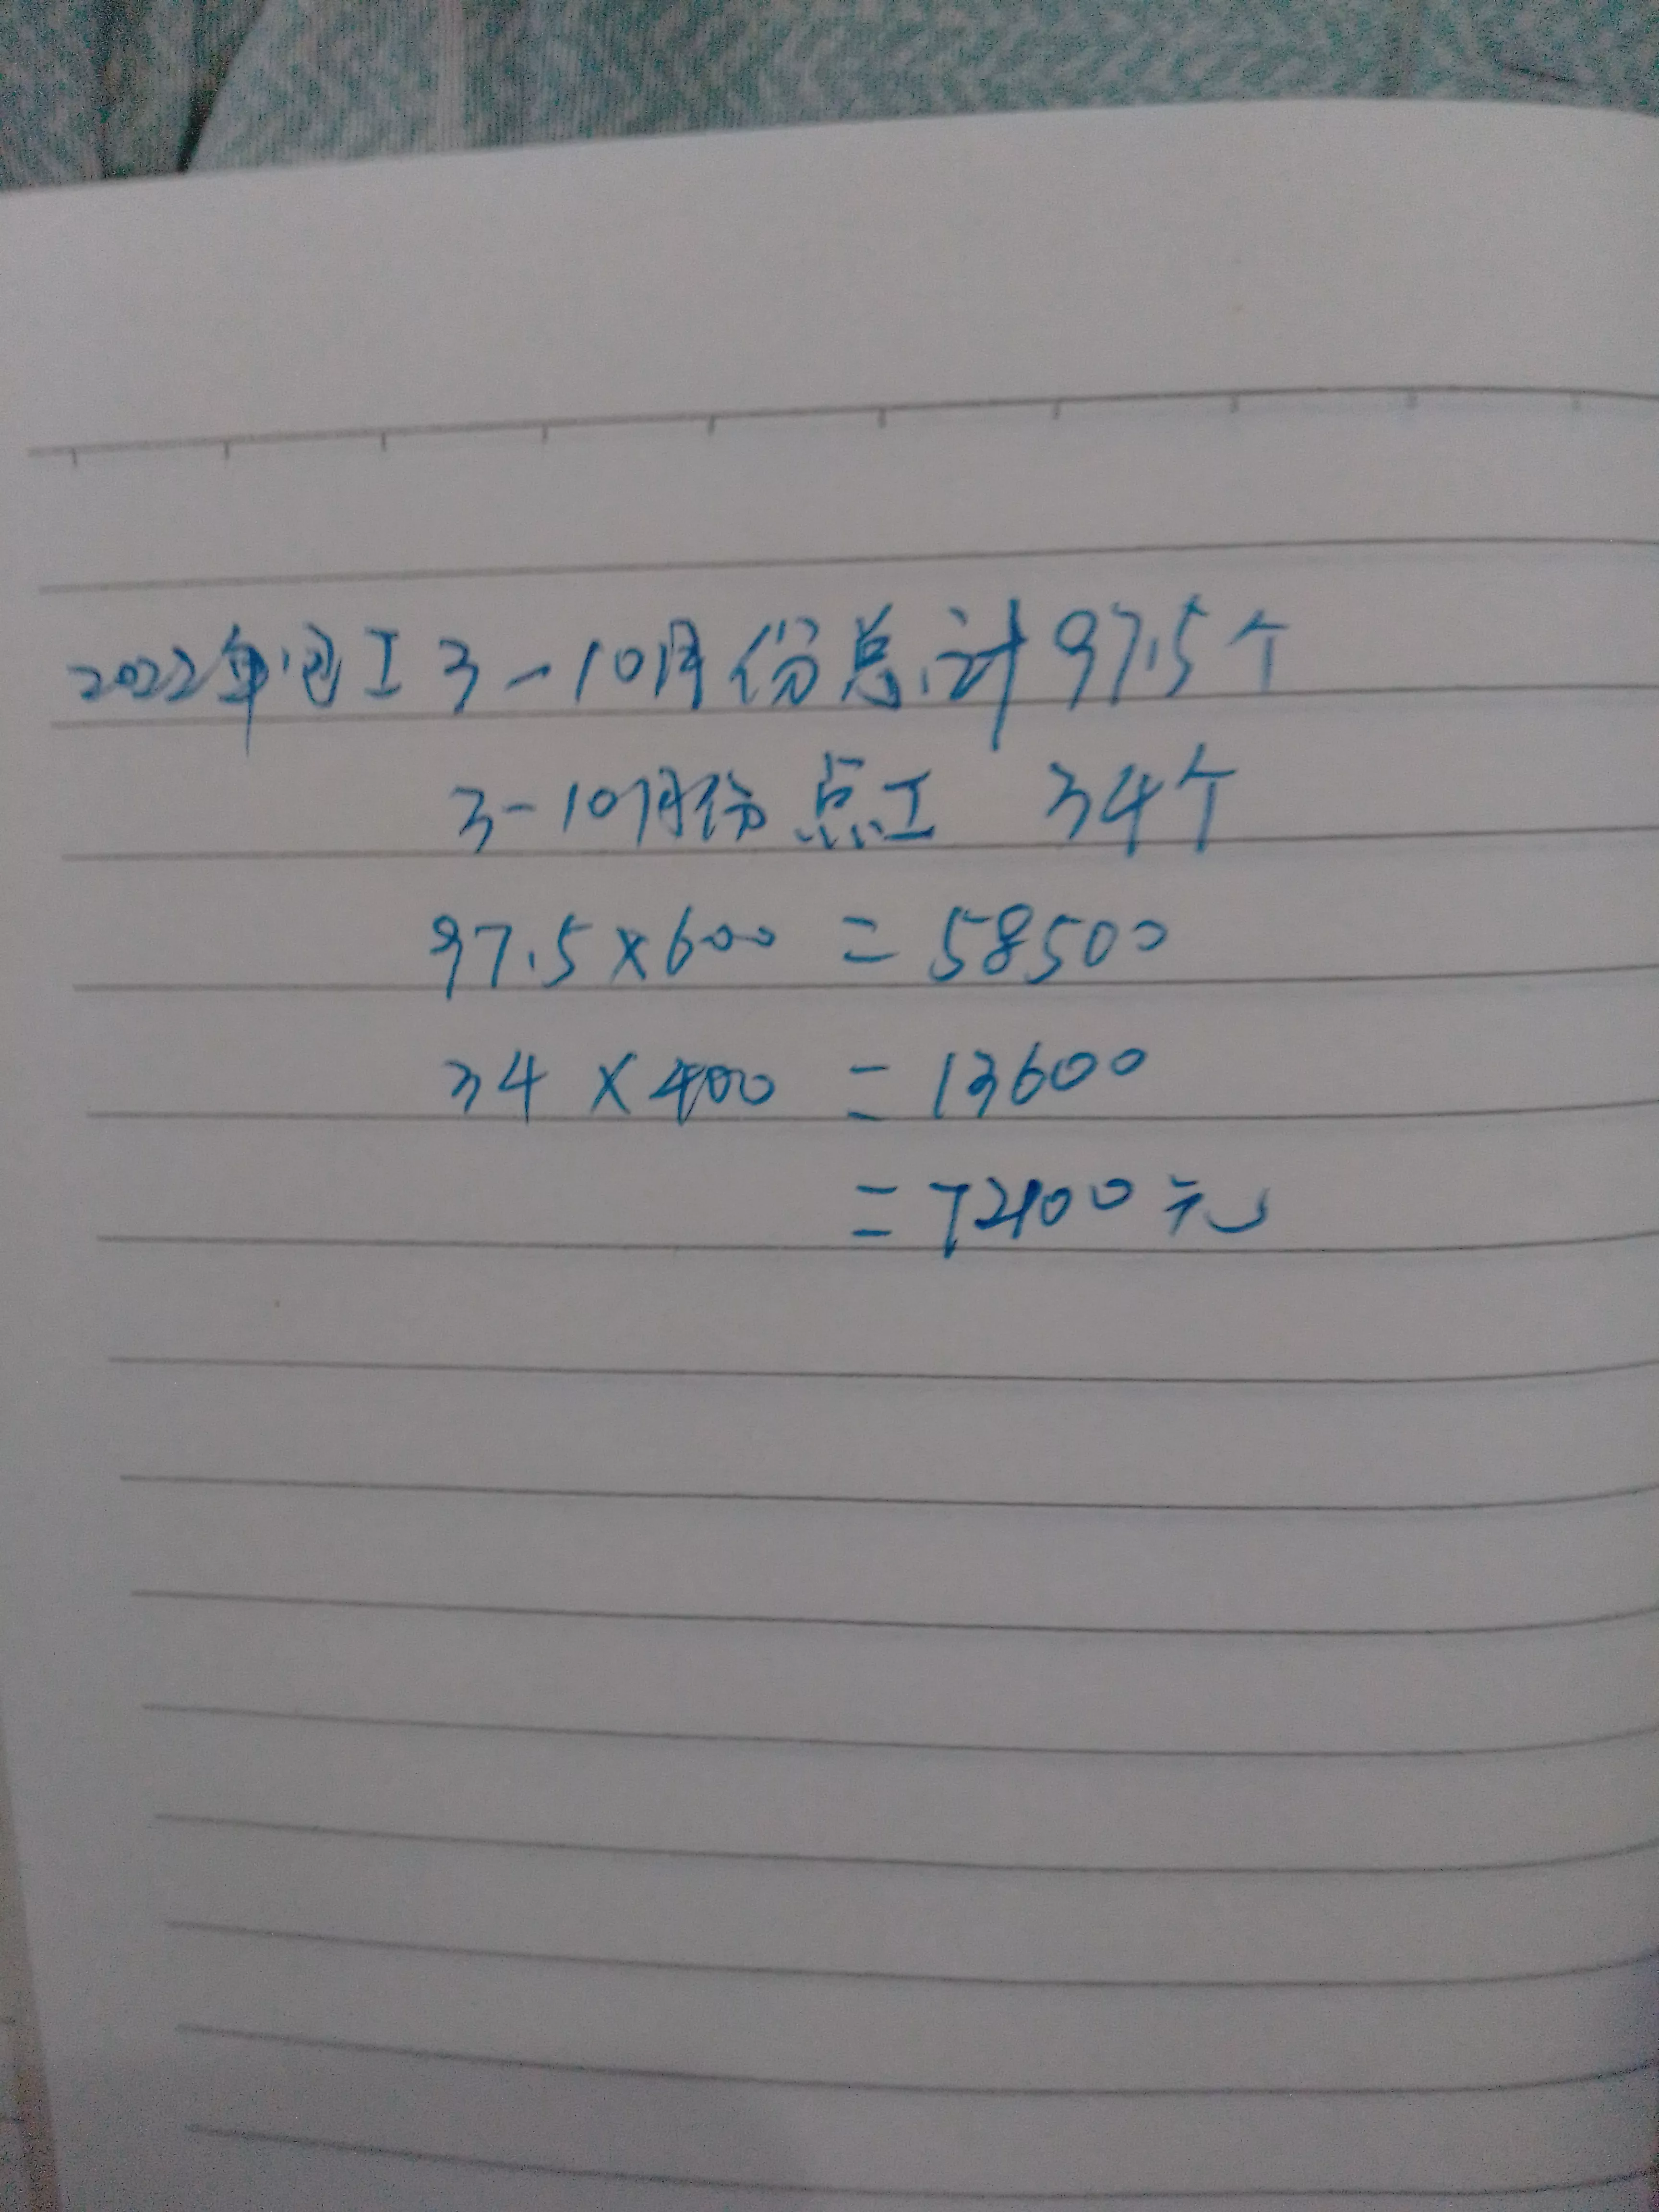 2022年包工3-10月份总计97.5个
3-10月份点工 34个
97.5×600=58500
34×400=13600
=72100元